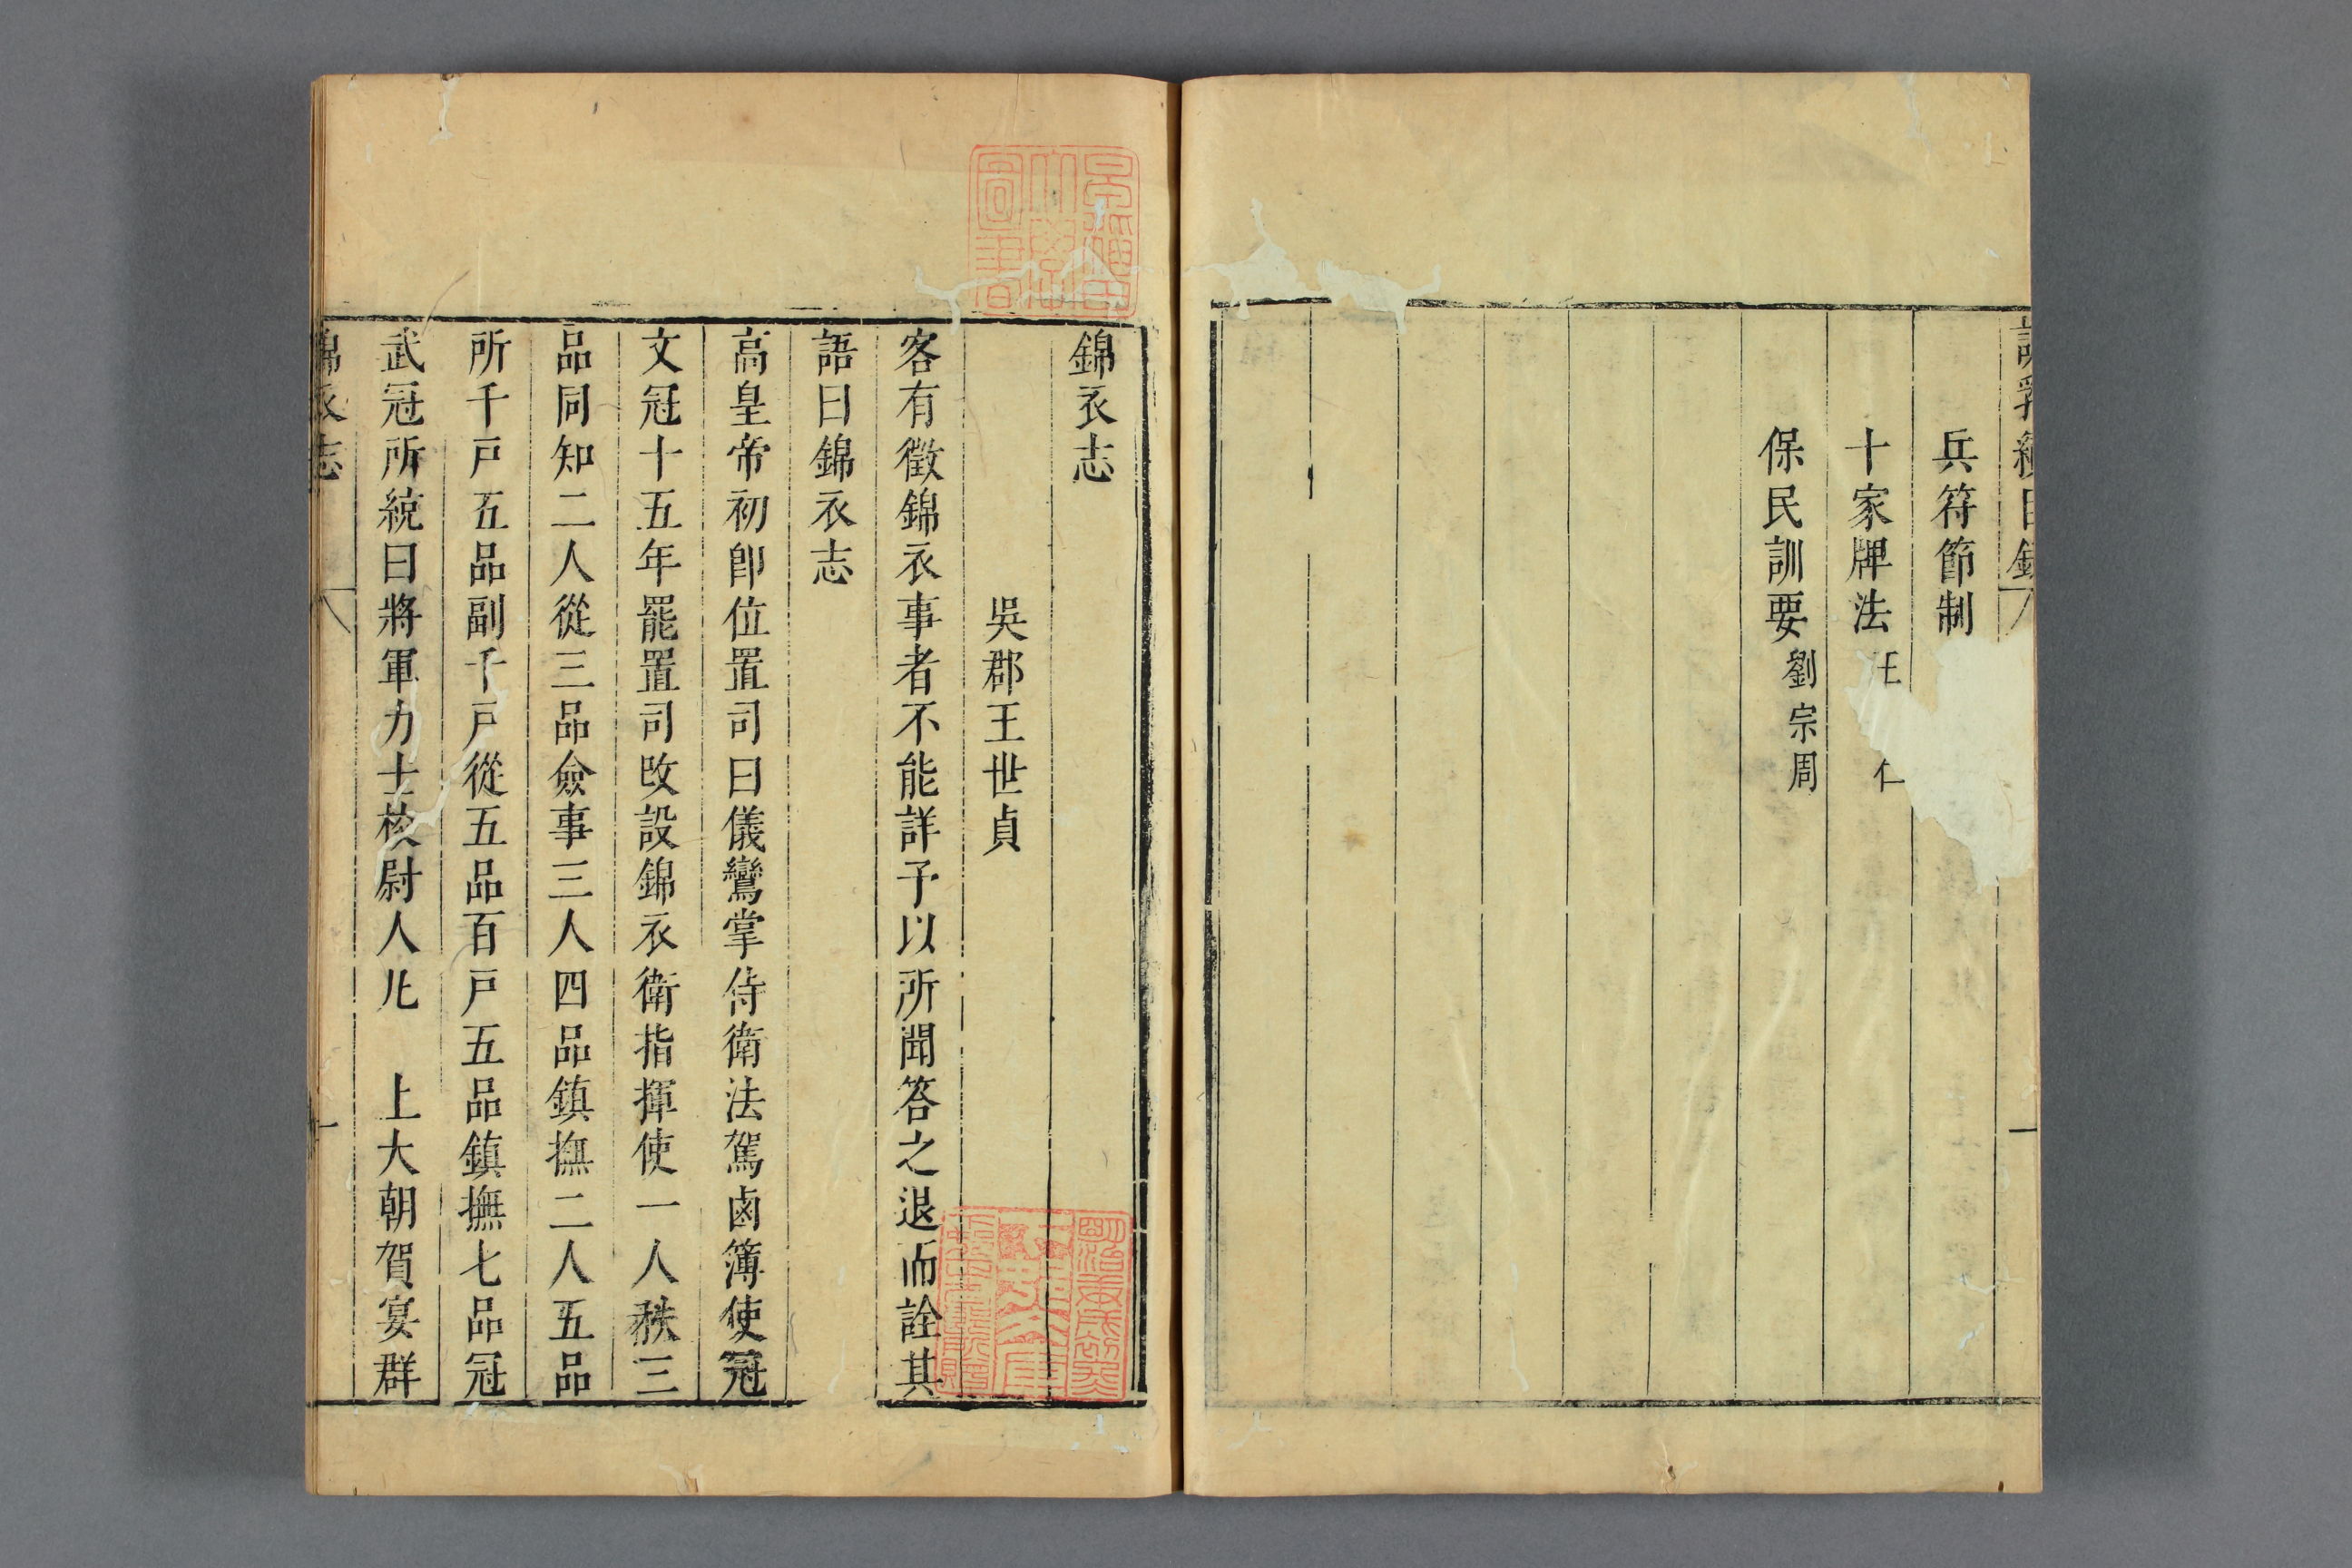 兵符節制
十家牌法
保民訓要劉宗周
錦衣志
吳郡王世貞
客有徵錦衣事者不能詳予以所聞答之退而詮其
語曰錦衣志
高皇帝初卽位置司曰儀鸞掌侍衛法駕鹵簿使冠
文冠十五年罷置司改設錦衣衛指揮使一人秩三
品同知二人從三品僉事三人四品鎮撫二人五品
所千戶五品副千戶從五品百戶五品鎮撫七品冠
武冠所統曰將軍力士校尉人凡　上大朝賀宴群
錦衣志